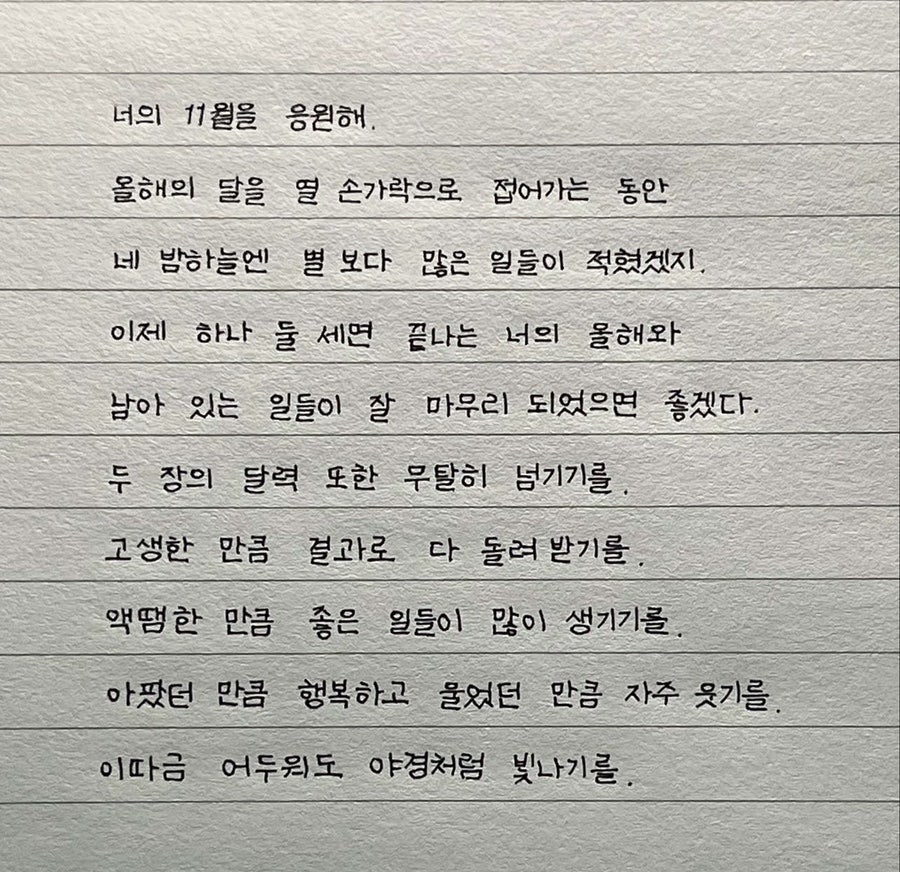 너의 11월을 응원해.
올해의 달을 열 손가락으로 접어가는 동안
네 밤하늘엔 별 보다 많은 일들이 적혔겠지.
이제 하나 둘 세면 끝나는 너의 올해와
남아 있는 일들이 잘 마무리 되었으면 좋겠다.
두 장의 달력 또한 무탈히 넘기기를.
고생한 만큼 결과로 다 돌려 받기를.
액땜한 만큼 좋은 일들이 많이 생기기를.
아팠던 만큼 행복하고 울었던 만큼 자주 웃기를.
이따금 어두워도 야경처럼 빛나기를.